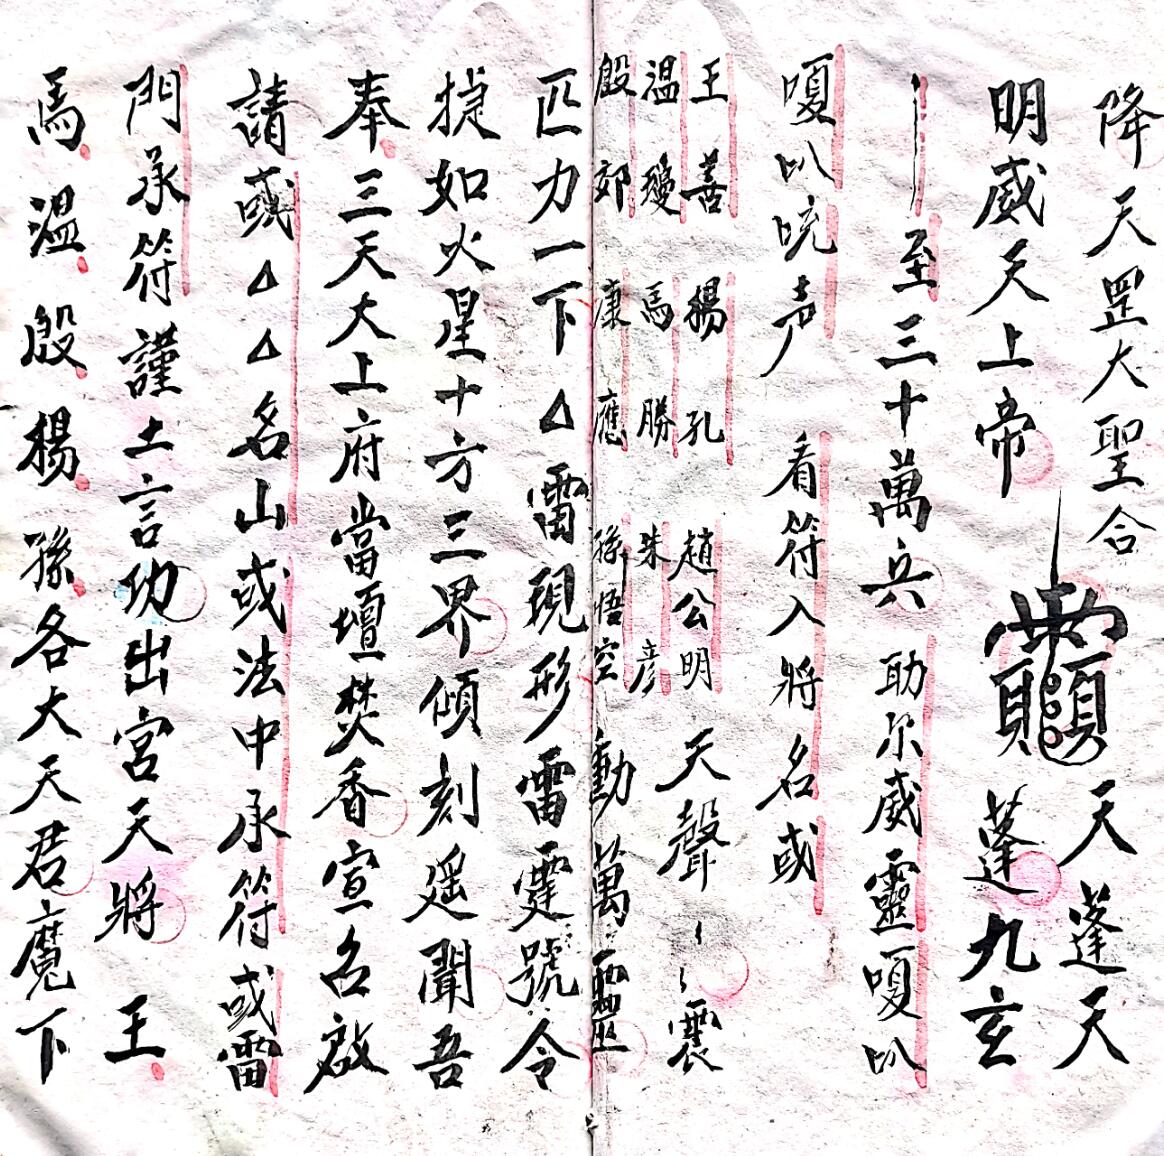 降天罡大聖合 天蓬天
明威天上帝 蓬九玄
至三十萬兵 助尔威靈嗄叭
嗄叭吮声 看符入將名或
王善 楊孔 趙公明
溫瓊 馬勝 朱彥
殷郊 康應 孫悟空
天聲 震
動萬靈
匹力一下△雷現形雷霆號令
捷如火星十方三界傾刻遥聞吾
奉三天大上府當壇焚香宣名啟
請或△△名山或法中承符或雷
門承符謹土言功出宮天將 王
馬溫殷楊孫各大天君魔下